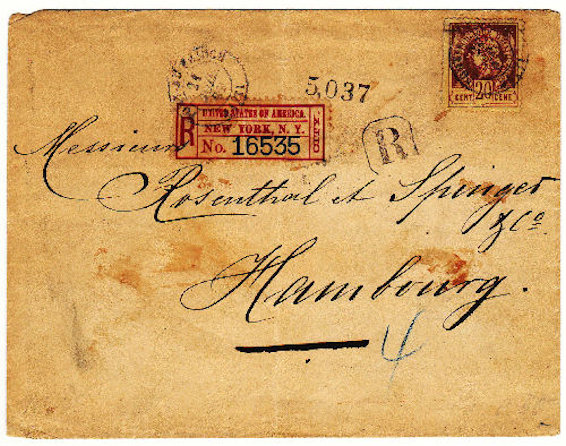 5,037
UNITED STATES OF AMERICA.
R NEW YORK, N. Y.
No. 16535
R
20
CENT CENT
Messieurs
Rosenthal et Spinger
& Co.
Hambourg.
4